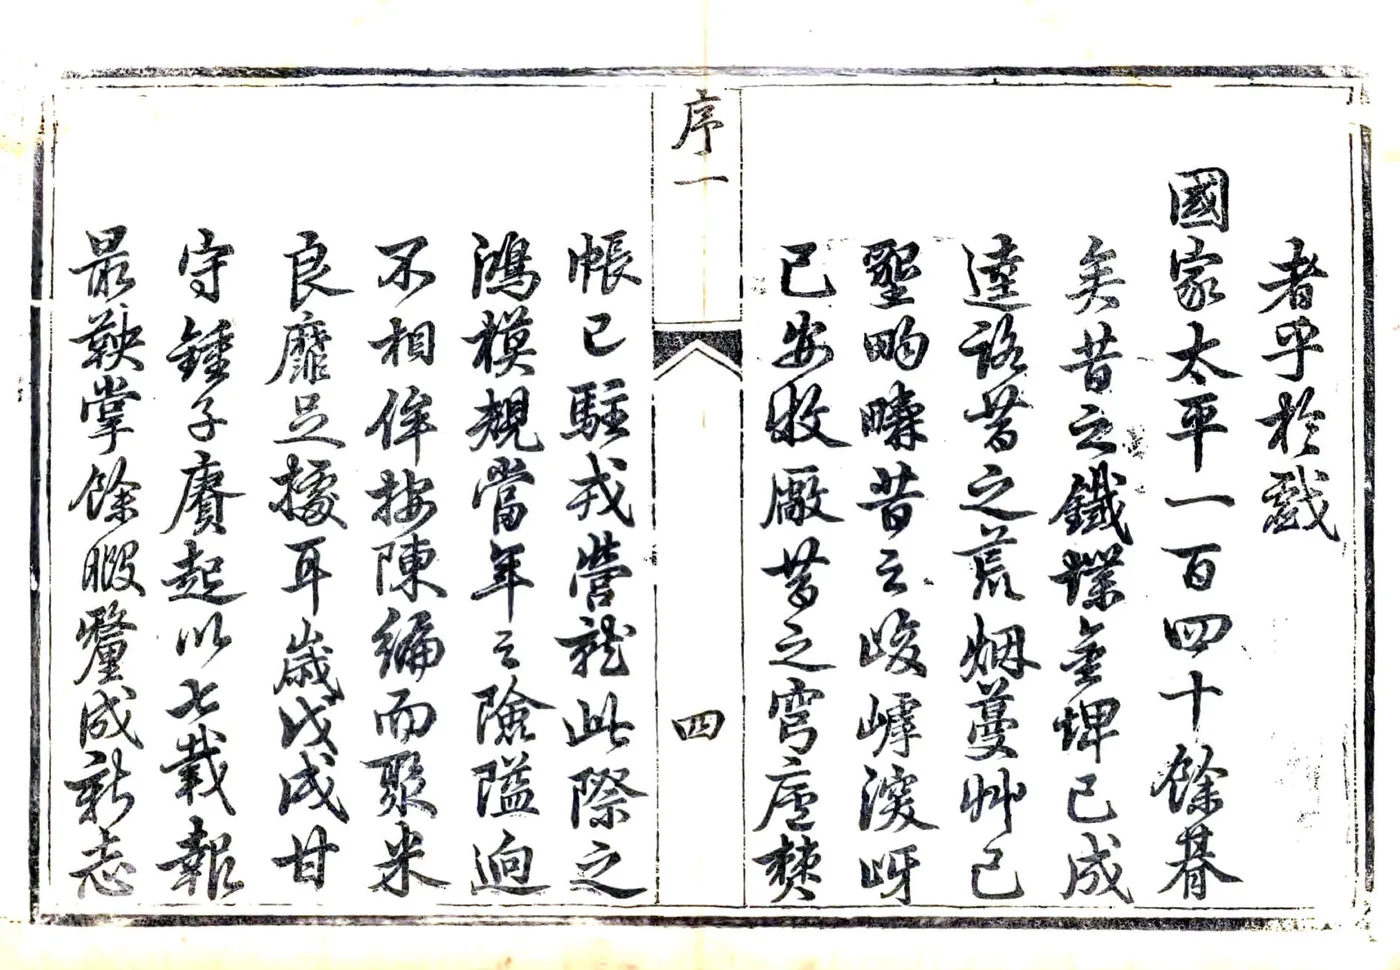 者乎於戲
國家太平一百四十餘朞
矣昔之鐵堞金埤已成
達路昔之荒烟蔓艸已
墾畇疇昔之峻嶂深岈
已安牧厰昔之穹廬
帳已駐戎營就此際之
鴻模規當年之險隘迥
不相侔按陳編而聚米
良靡足據耳歲戊戌甘
守鍾子賡起以七載報
最鞅掌餘暇釐成新志
序一
四